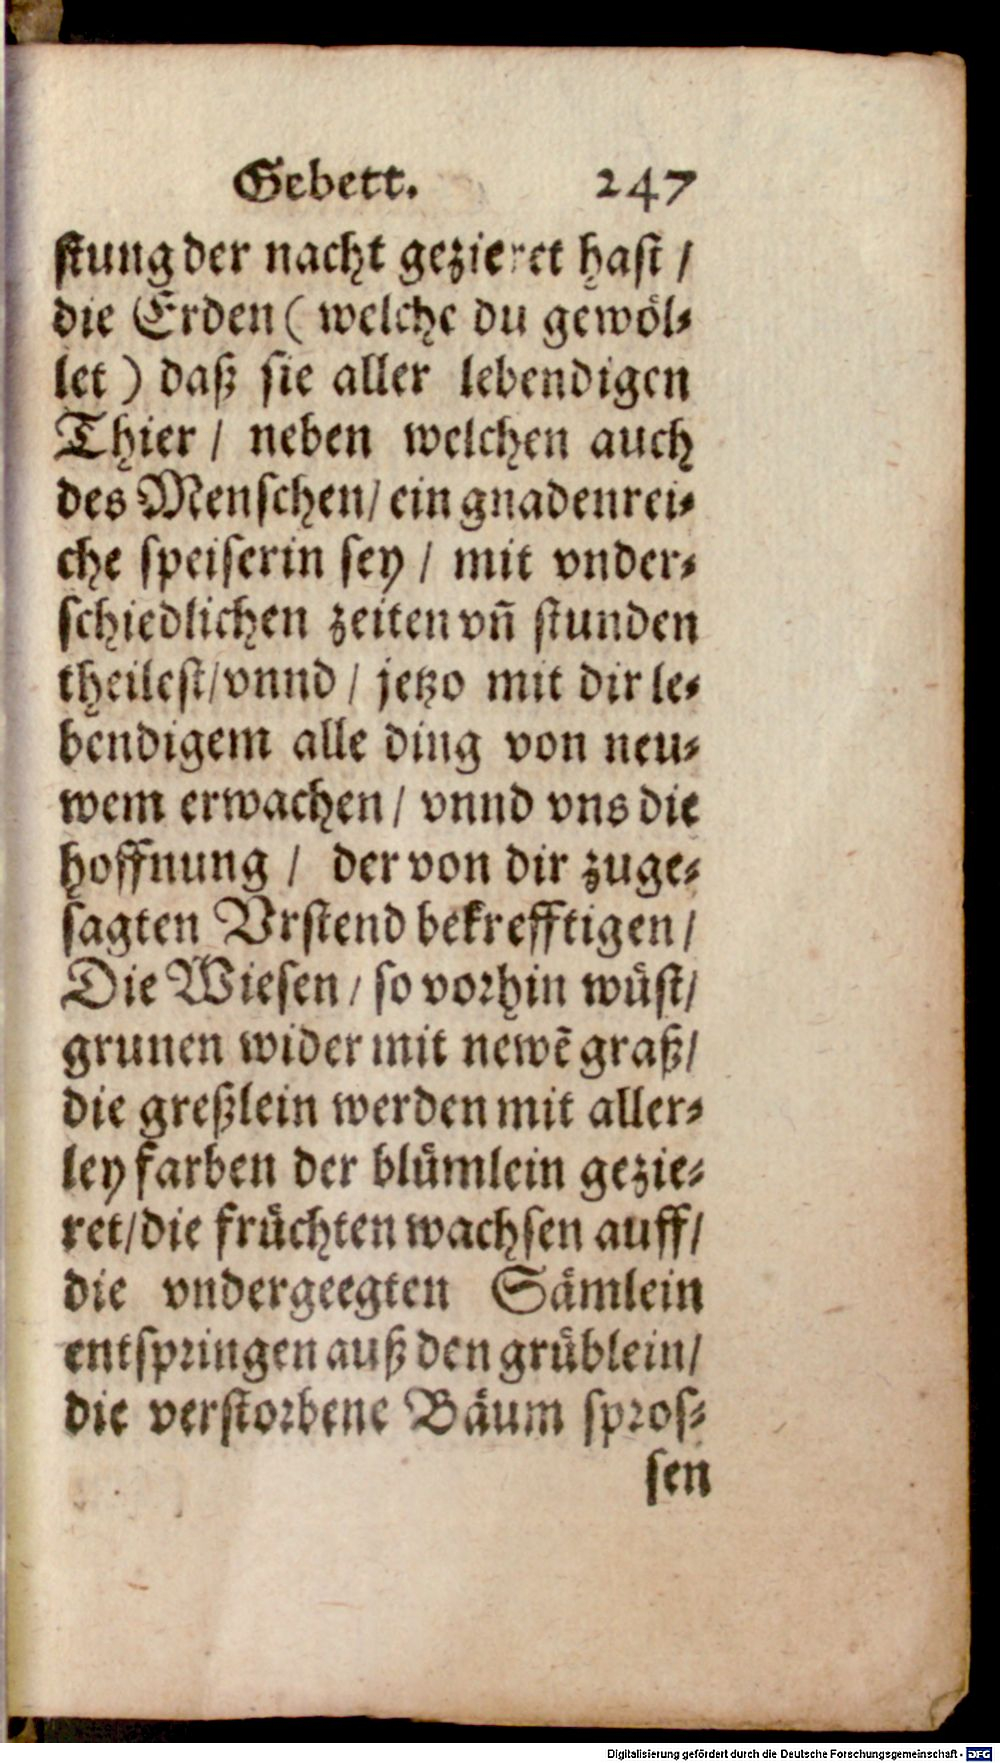 Gebett. 247
stung der nacht gezieret hast /
die Erden ( welche du gewöl⸗
let ) daß sie aller lebendigen
Thier / neben welchen auch
des Menschen / ein gnadenrei⸗
che speiserin sey / mit vnder⸗
schiedlichen zeiten vñ stunden
theilest / vnnd / jetzo mit dir le⸗
bendigem alle ding von neu⸗
wem erwachen / vnnd vns die
hoffnung / der von dir zuge⸗
sagten Vrstend bekrefftigen /
Die Wiesen / so vorhin wüst /
grunen wider mit newẽ graß /
die greßlein werden mit aller⸗
ley farben der blümlein gezie⸗
ret / die früchten wachsen auff /
die vndergeegten Sämlein
entspringen auß den grüblein /
die verstorbene Bäum spros⸗
sen
Digitalisierung gefördert durch die Deutsche Forschungsgemeinschaft - DFG